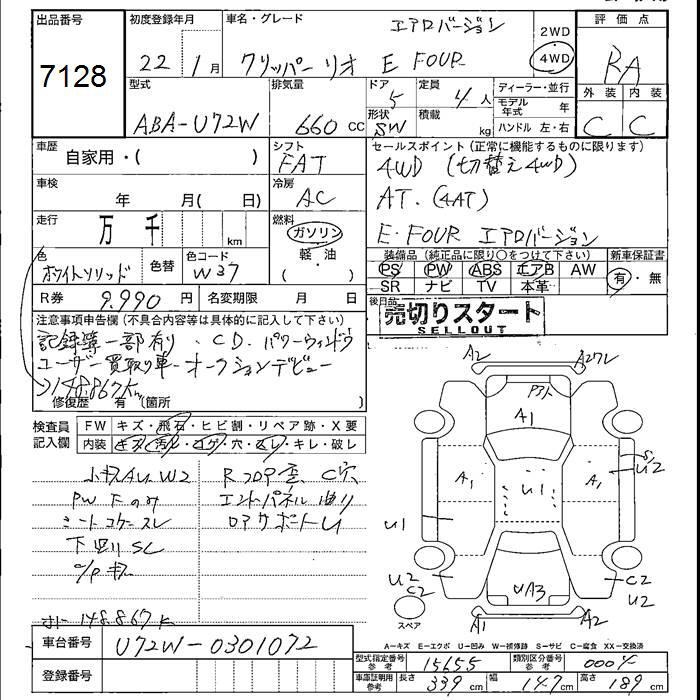 出品番号 初度登録年月 車名・グレード エアロバージョン 2WD 評価点
7128 22 1月 クリッパー リオ E FOUR 4WD RA
型式 排気量 ドア 5 定員 4人 ディーラー・並行 外装 内装
ABA-U72W 660cc 形状 SW 積載 kg モデル年式 年 C C
ハンドル 左・右
車歴 自家用・( ) シフト FAT セールスポイント(正常に機能するものに限ります)
4WD (切替え4WD)
車検 年 月( 日) 冷房 AC AT. (4AT)
走行 万 千 km 燃料 ガソリン E・FOUR エアロバージョン
色 ホワイトソリッド 色替 色コード W37 (軽・油) 装備品(純正品に限り○をつけて下さい) 新車保証書
PS PW ABS エアB AW 有・無
SR ナビ TV 本革
R券 9,990円 名変期限 月 日 後日品
売切りスタート
SELLOUT
注意事項申告欄(不具合内容等は具体的に記入して下さい)
記録簿一部有り、CD、パワーウィンドウ
ユーザー買取り車 オークションデビュー
148,867km
修復歴 有(箇所 )
検査員記入欄 FW キズ・飛石・ヒビ割・リペア跡・X要
内装 キズ・汚レ・コゲ・穴・スレ・キレ・破レ
小キズAU W2 C穴
PW下のみ エンドパネル曲り
シートコゲ・スレ ロアサポートU
下廻りSC
148,867K
A2 A2ワレ
A1
S
U2
A1 U1 A1
U1
U2 C2
C2 U2
UA3
スペア A1 A2
A=キズ E=エクボ U=凹み W=補修跡 S=サビ C=腐食 XX=交換済
車台番号 U72W-0301072
型式指定番号 参考 15655 類別区分番号 参考 0004
登録番号 車庫証明用 参考 長さ 339cm 幅 147cm 高さ 189cm